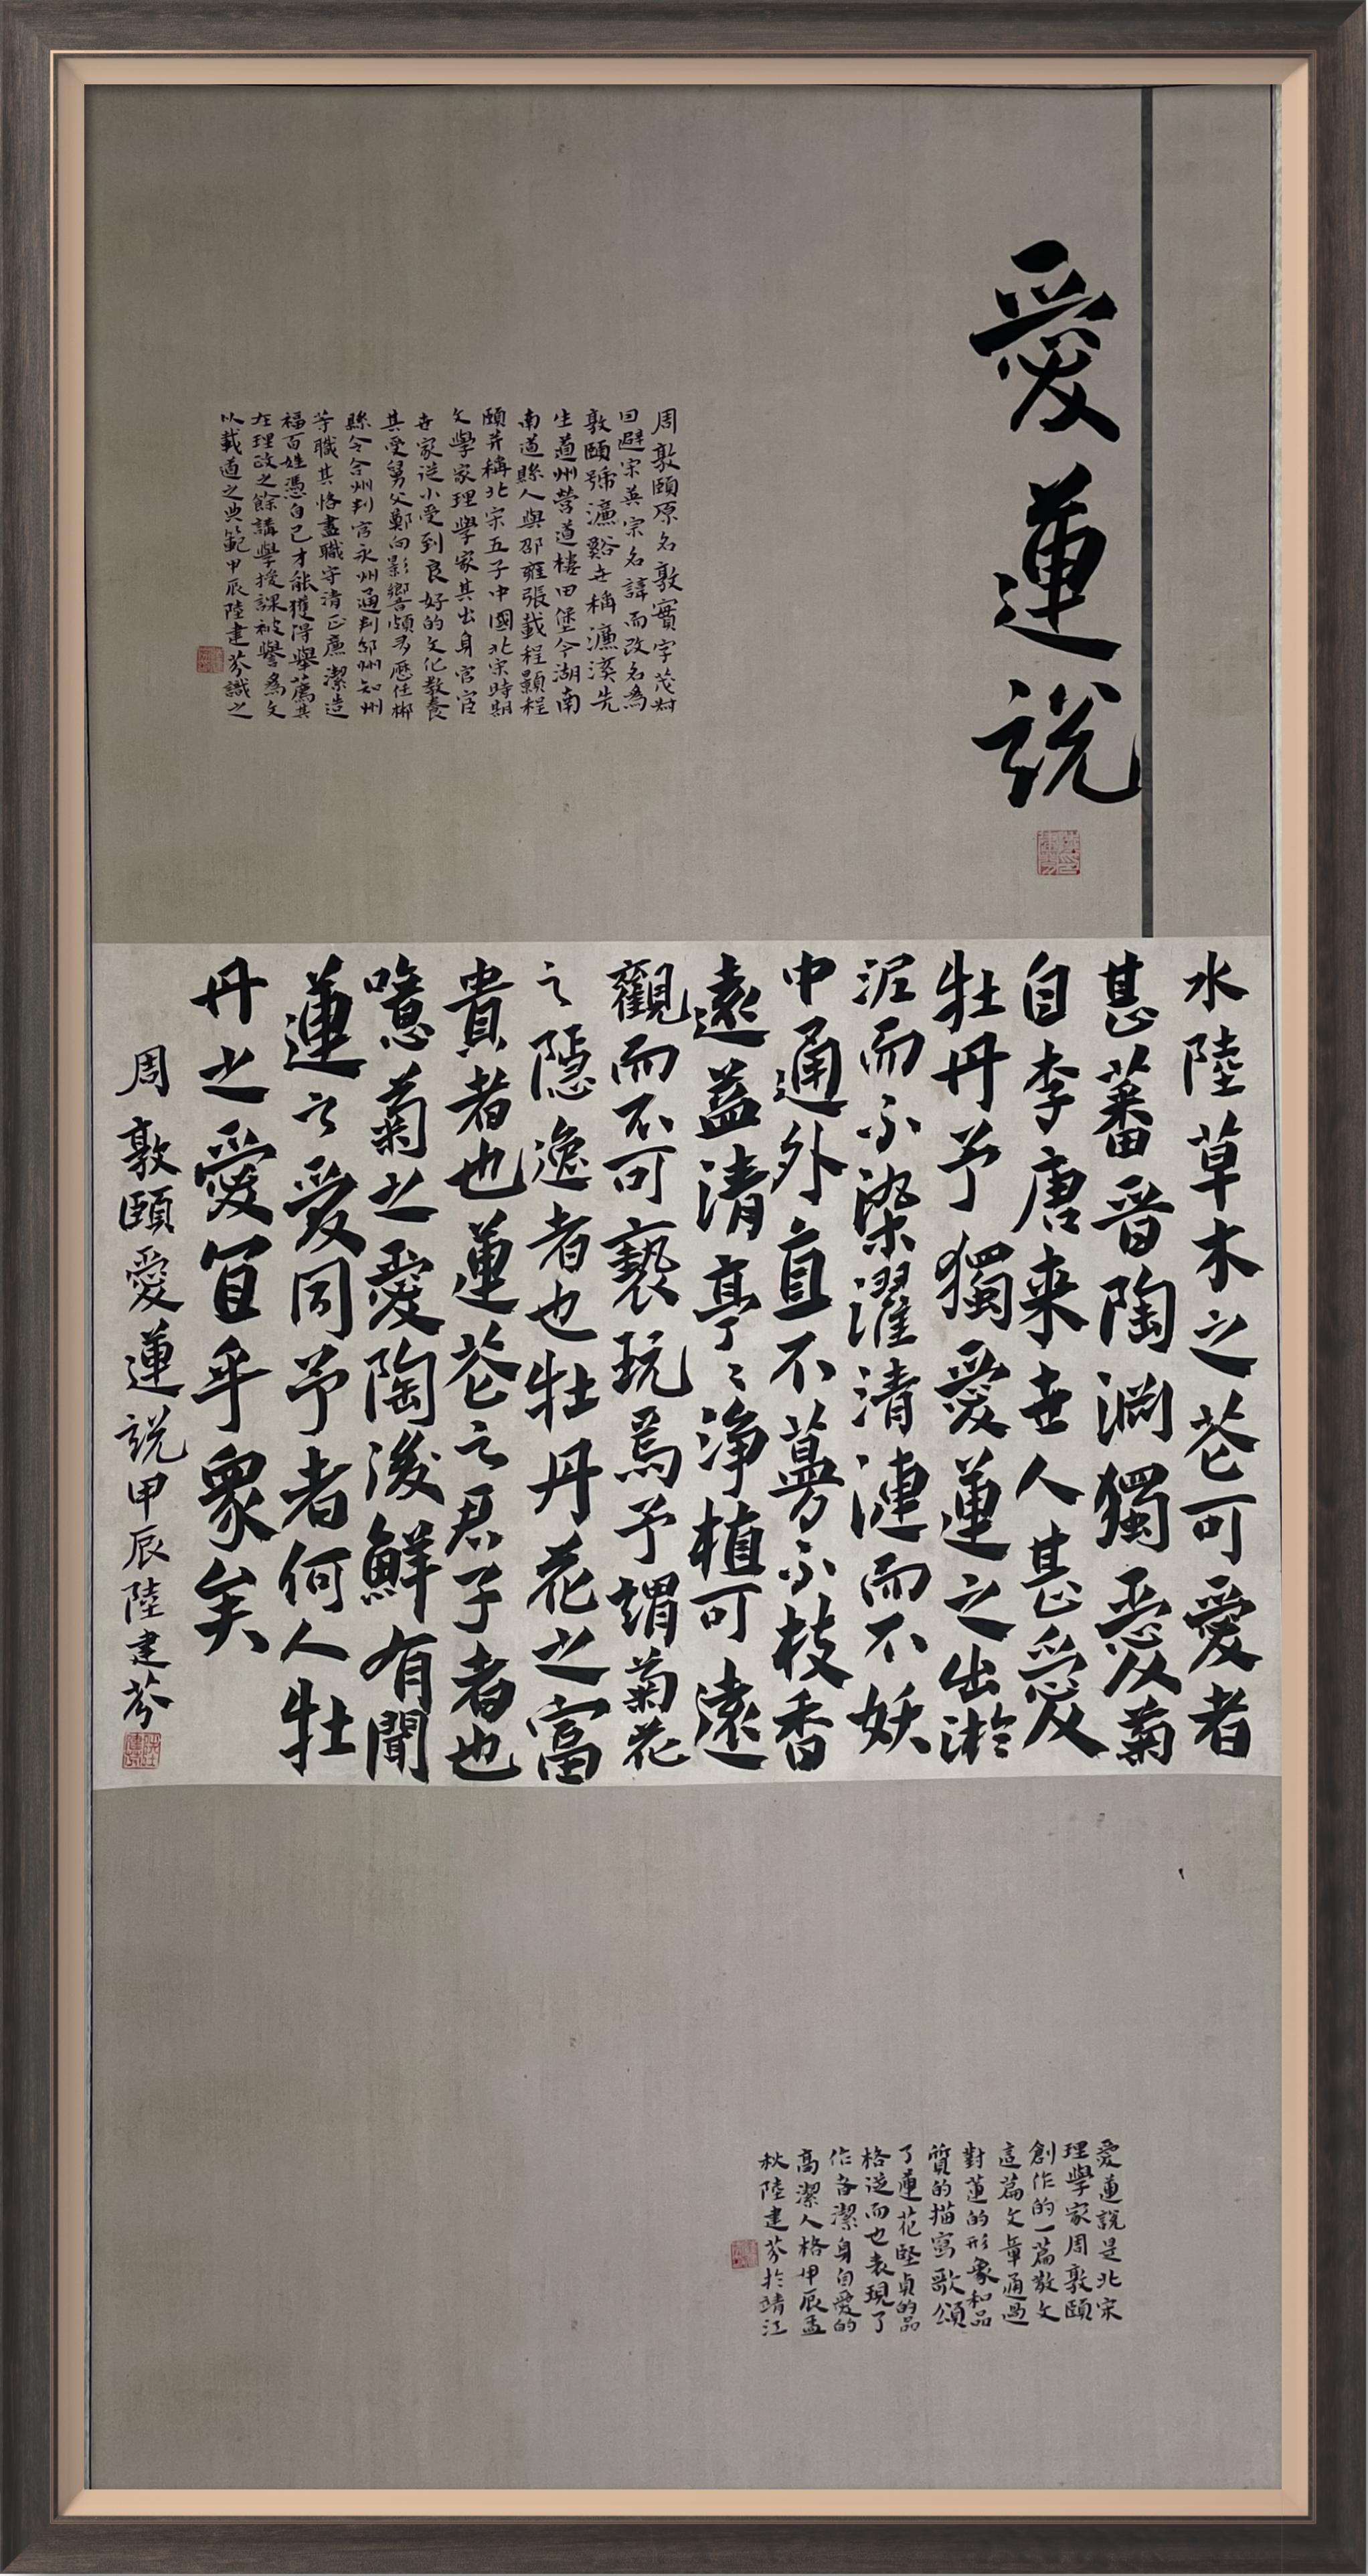 愛蓮説
周敦頤原名敦實字茂叔
回避宋英宗名諱而改名為
敦頤號濂谿世稱濂溪先
生道州營道樓田堡今湖南
南道縣人與邵雍張載程顥程
頤并稱北宋五子中國北宋時期
文學家理學家其出身官宦
世家從小受到良好的文化教養
其受舅父鄭向影響頗多歷任郴
縣令合州判官永州通判邵州知州
等職其恪盡職守清正廉潔造
福百姓憑自己才能獲得舉薦其
在理政之餘講學授課被譽為文
以載道之典範甲辰陸建芬識之
水陸草木之花可愛者
甚蕃晉陶淵獨愛菊
自李唐来世人甚愛
牡丹予獨愛蓮之出淤
泥而不染濯清漣而不妖
中通外直不蔓不枝香
遠益清亭〻淨植可遠
觀而不可褻玩焉予謂菊花
之隱逸者也牡丹花之富
貴者也蓮花之君子者也
噫菊之愛陶後鮮有聞
蓮之愛同予者何人牡
丹之愛宜乎衆矣
周敦頤愛蓮説甲辰陸建芬
愛蓮説是北宋
理學家周敦頤
創作的一篇散文
這篇文章通過
對蓮的形象和品
質的描寫歌頌
了蓮花堅貞的品
格從而也表現了
作者潔身自愛的
高潔人格甲辰孟
秋陸建芬於靖江